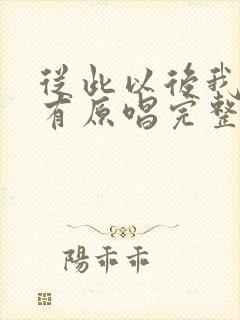 從此以後我
有原唱完整
陽乖乖